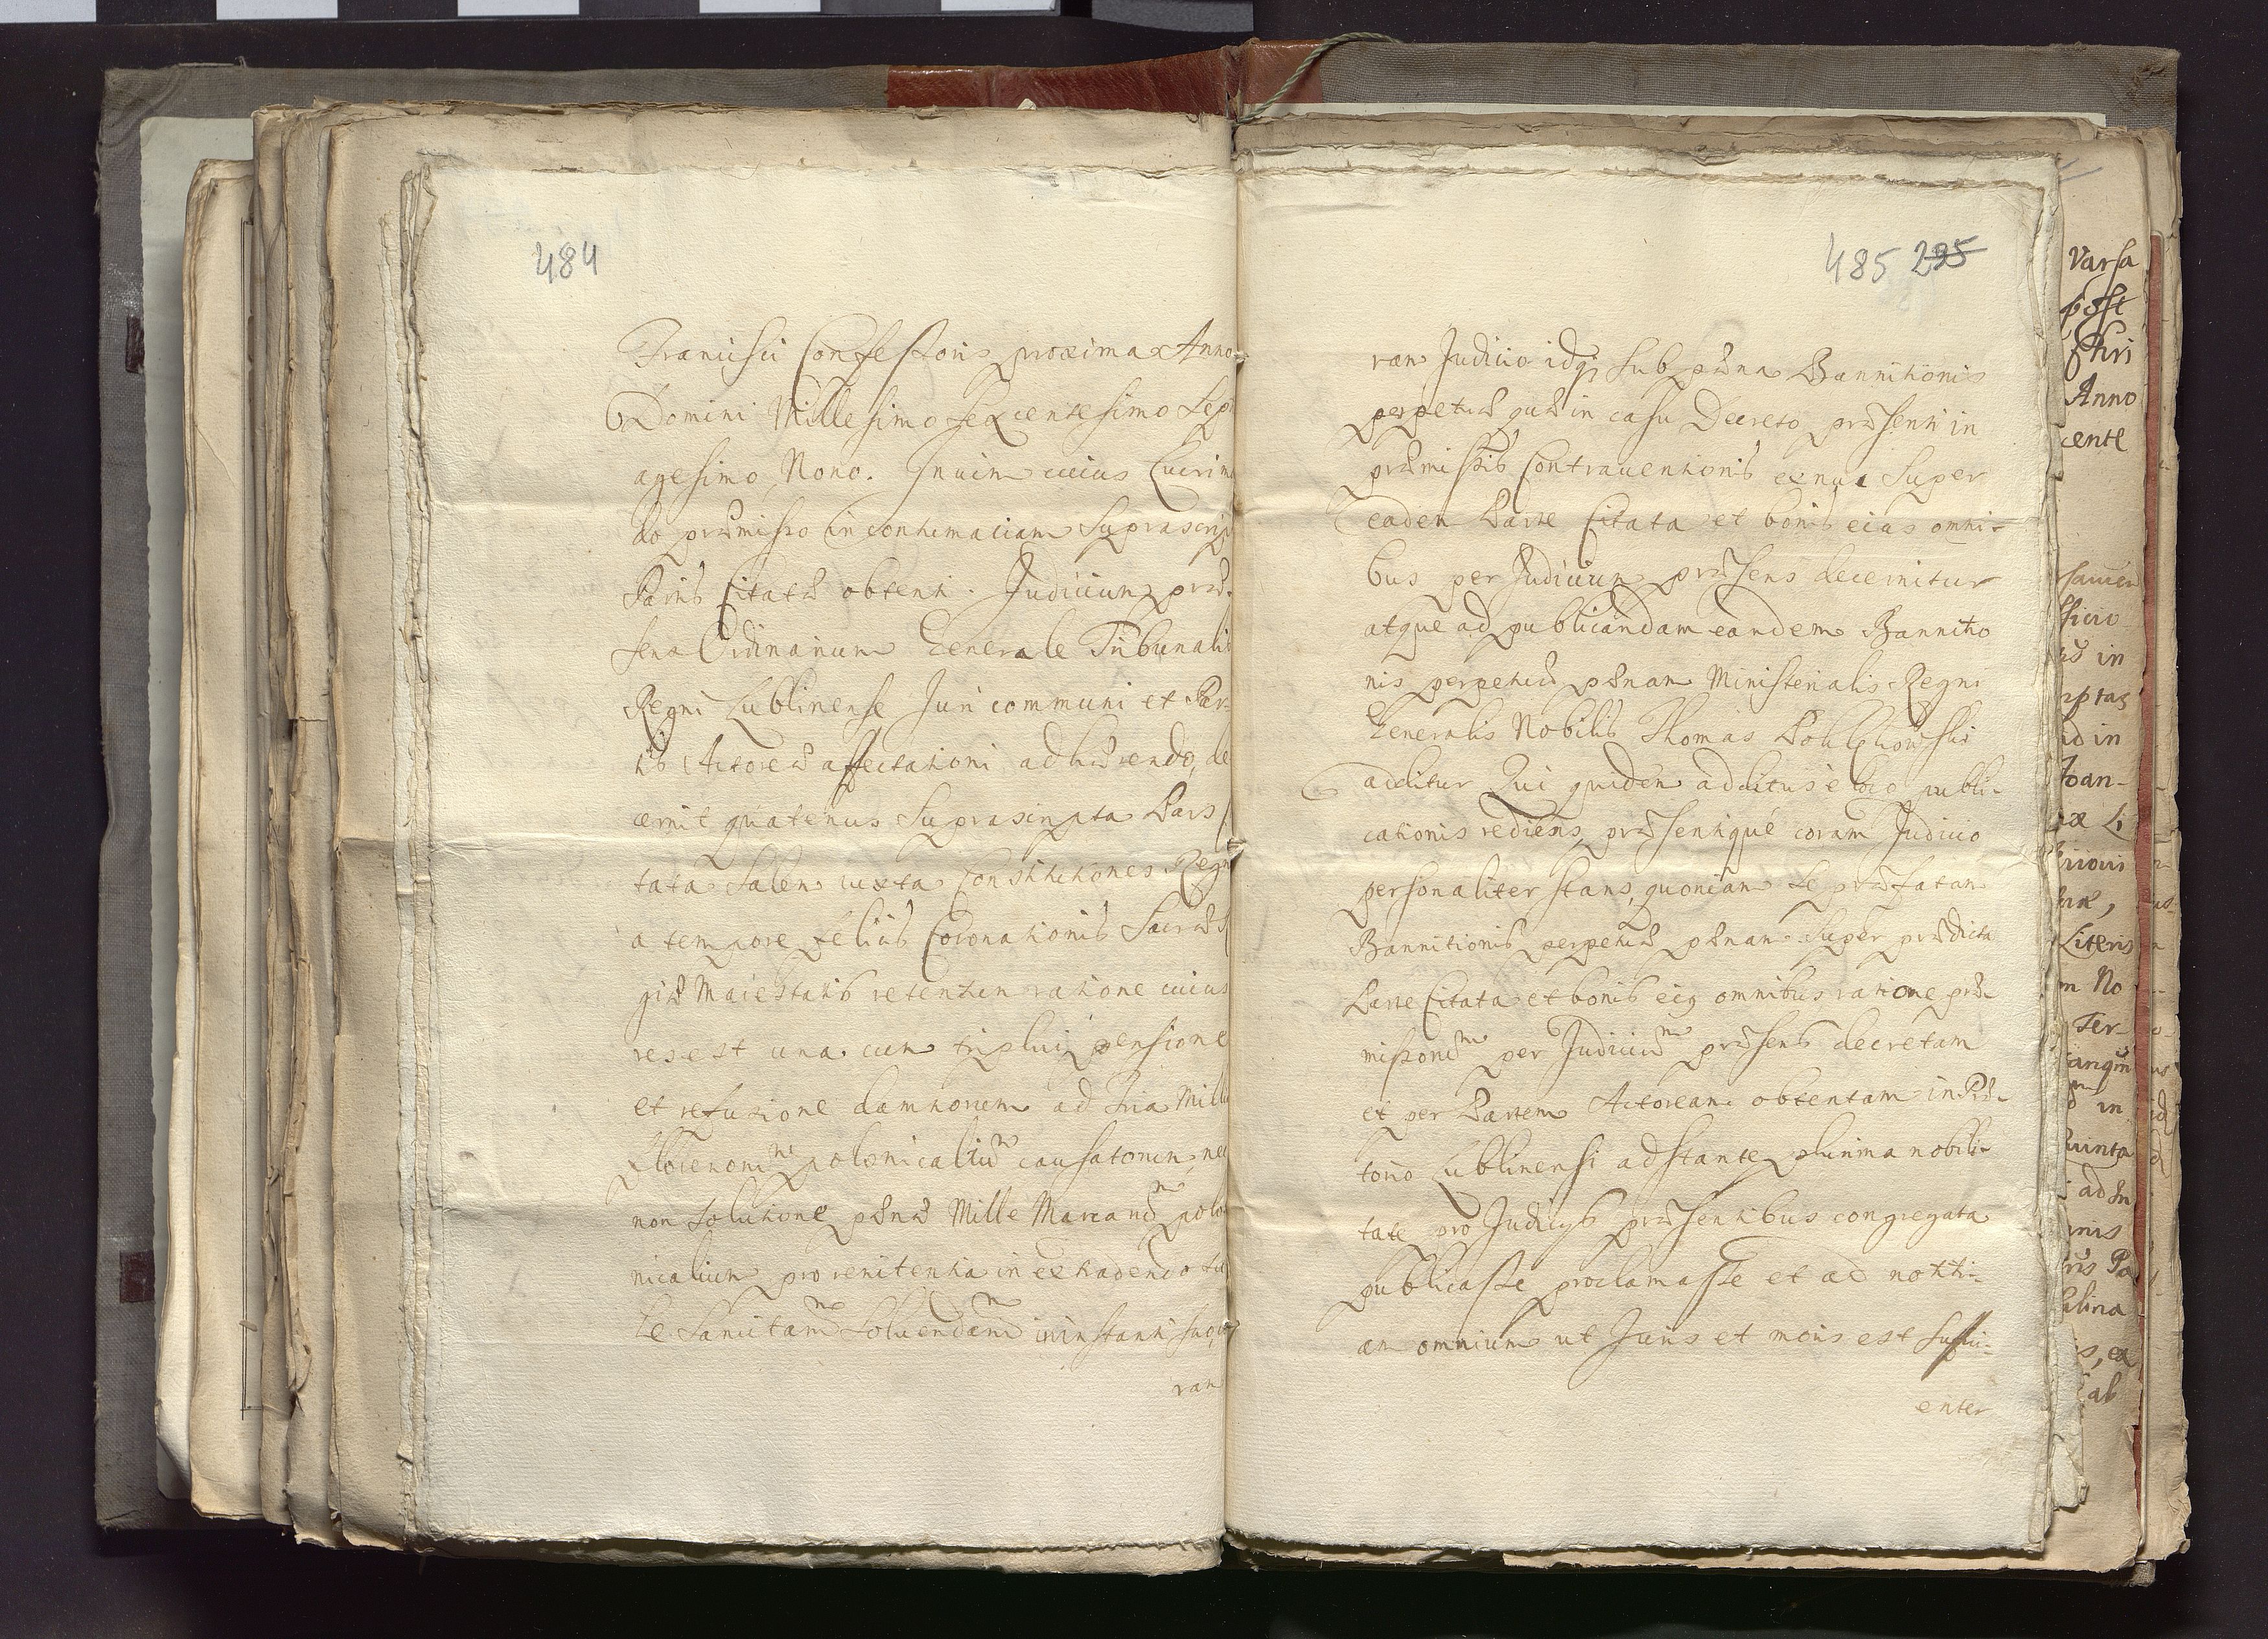 484
Francisci Confessoris proxima Anno
Domini Millesimo sexcentesimo Sept
agesimo Nono. In vim cuius Lucri in
do præmisso in contumatiam Suprascrip
Partis Citatæ obtenti. Judicium præ-
sens Ordinarium Generale Tribunalis
Regni Lublinense Juri communi et Par-
tis Actoreæ affectationi adhærendo, de
cernit quatenus Suprascripta Pars
tata Salem iuxta Constitutiones Regn
a tempore felicis Coronationis Sacræ
giæ Maiestatis retentum ratione cuius
res est una cum triplici pensione
et refusione damnorum ad tria Mille
florenorum polonicalium causatorum, nec
non Solutione pænæ Mille Marcarum polo
nicalium pro renitentia in extradendo
le Sancitarum Solvendarum in instanti
ram
485 295
ram Judicio idq; Sub pæna Bannitionis
perpetuæ quæ in casu Decreto præsenti in
præmissis Contraventionis ex nunc Super
eadem Parte Citata et bonis eius omni-
bus per Judicium præsens decernitur
atque ad publicandam eandem Bannitio
nis perpetuæ pænam Ministerialis Regni
Generalis Nobilis Thomas
additur Qui quidem additus e loco publi-
cationis rediens, præsentique coram Judicio
personaliter stans, quoniam se præfatam
Bannitionis perpetuæ pænam Super prædicta
Parte Citata et bonis eiq omnibus ratione præ-
missorum per Judicium præsens decretam
et per Partem Actoream obtentam in Præ-
torio Lublinensi adstante plurima nobili-
tate pro Judicijs præsentibus congregata
publicasse proclamasse et ad notiti-
am omnium ut Juris et moris est suffici-
enter
Varsa
post
Chri
Anno
cente
in
ptas
id in
Joan-
Li
Literis
m No
Ter
in
uinta
ad In
alina
ab